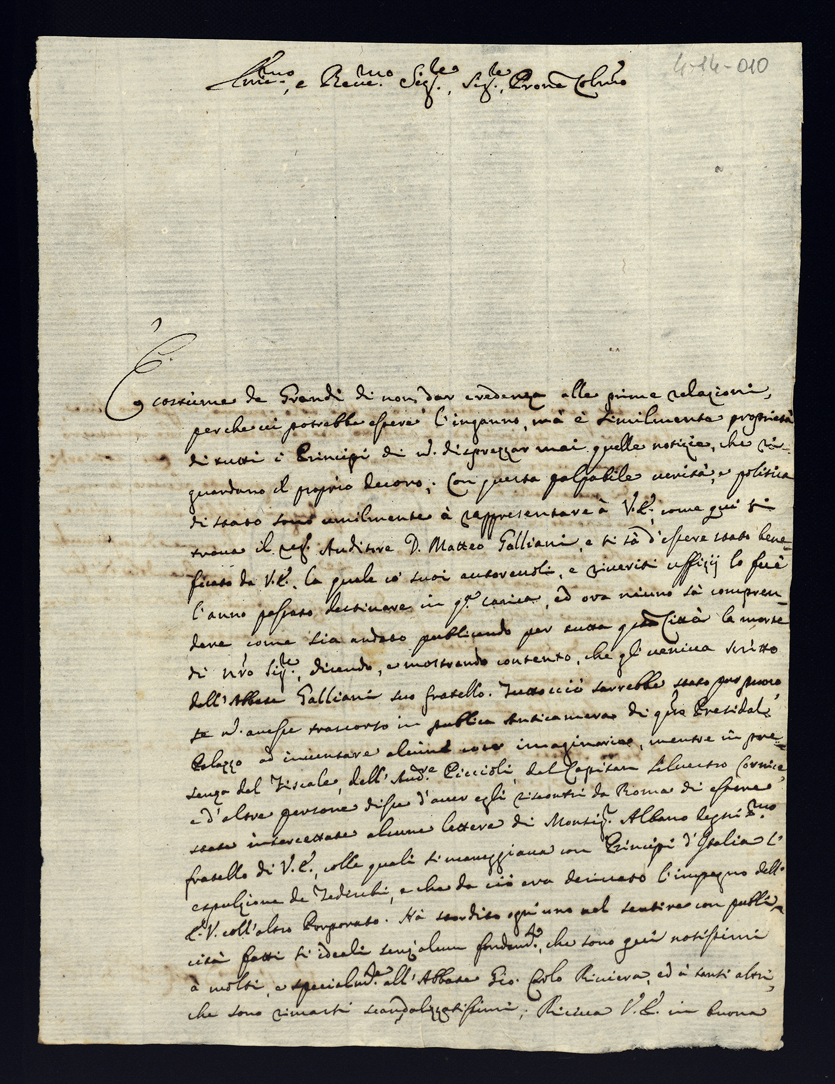 4-14-010
Illmo, e Reve.mo Sig.re, Sig.re, Prone Colmo
È costume de Grandi di non dar credenza alle prime relazioni,
perche ui potrebbe essere l'inganno, mà è similmente proprietà
di tutti i Principi di nō disprezzar mai quelle notizie, che ri-
guardano il proprio decoro; Con questa palpabile uerità, e politica
di stato sono umilmente à rappresentare à V.E., come qui si
troua il Auditore D. Matteo Galliani, e si sà d'essere stato bene-
ficato da V.E. la quale co' suoi autoreuoli, e riueriti uffizij lo fece
l'anno passato destinare in qta carica, ed ora niuno sà compren-
dere come sia andato publicando per tutta qta Città la morte
di nrō Sig.re, dicendo, e mostrando contento, che gli ueniua scritto
dall'Abbate Galliani suo fratello. Tuttociò sarrebbe stato
se nō auesse trascorso in publica Anticamera di qto Presidal
Palazzo ad inuentare alcune cose imaginarie, mentre in pre-
senza del Fiscale, dell'Aud.re Piccioli del Capitan Siluestro
e d'altre persone disse d'auer egli riscontri da Roma di essere
state intercettate alcune lettere di Monsig.r Albano degn.mo
fratello di V.E., colle quali si maneggiaua con Principi d'Italia l'
espulzione de Tedeschi, e che da ciò era deriuato l'impegno dell'
E.V. coll'altro Porporato. Hà stordito ogn'uno nel sentire con publi-
cità fatti si ideali senz'alcun fondam.to, che sono già notissimi
à molti, e specialm.te all'Abbate Gio: Carlo Riuiera, ed à tanti altri,
che sono rimasti scandalizatissimi; Riceua V.E. in buona